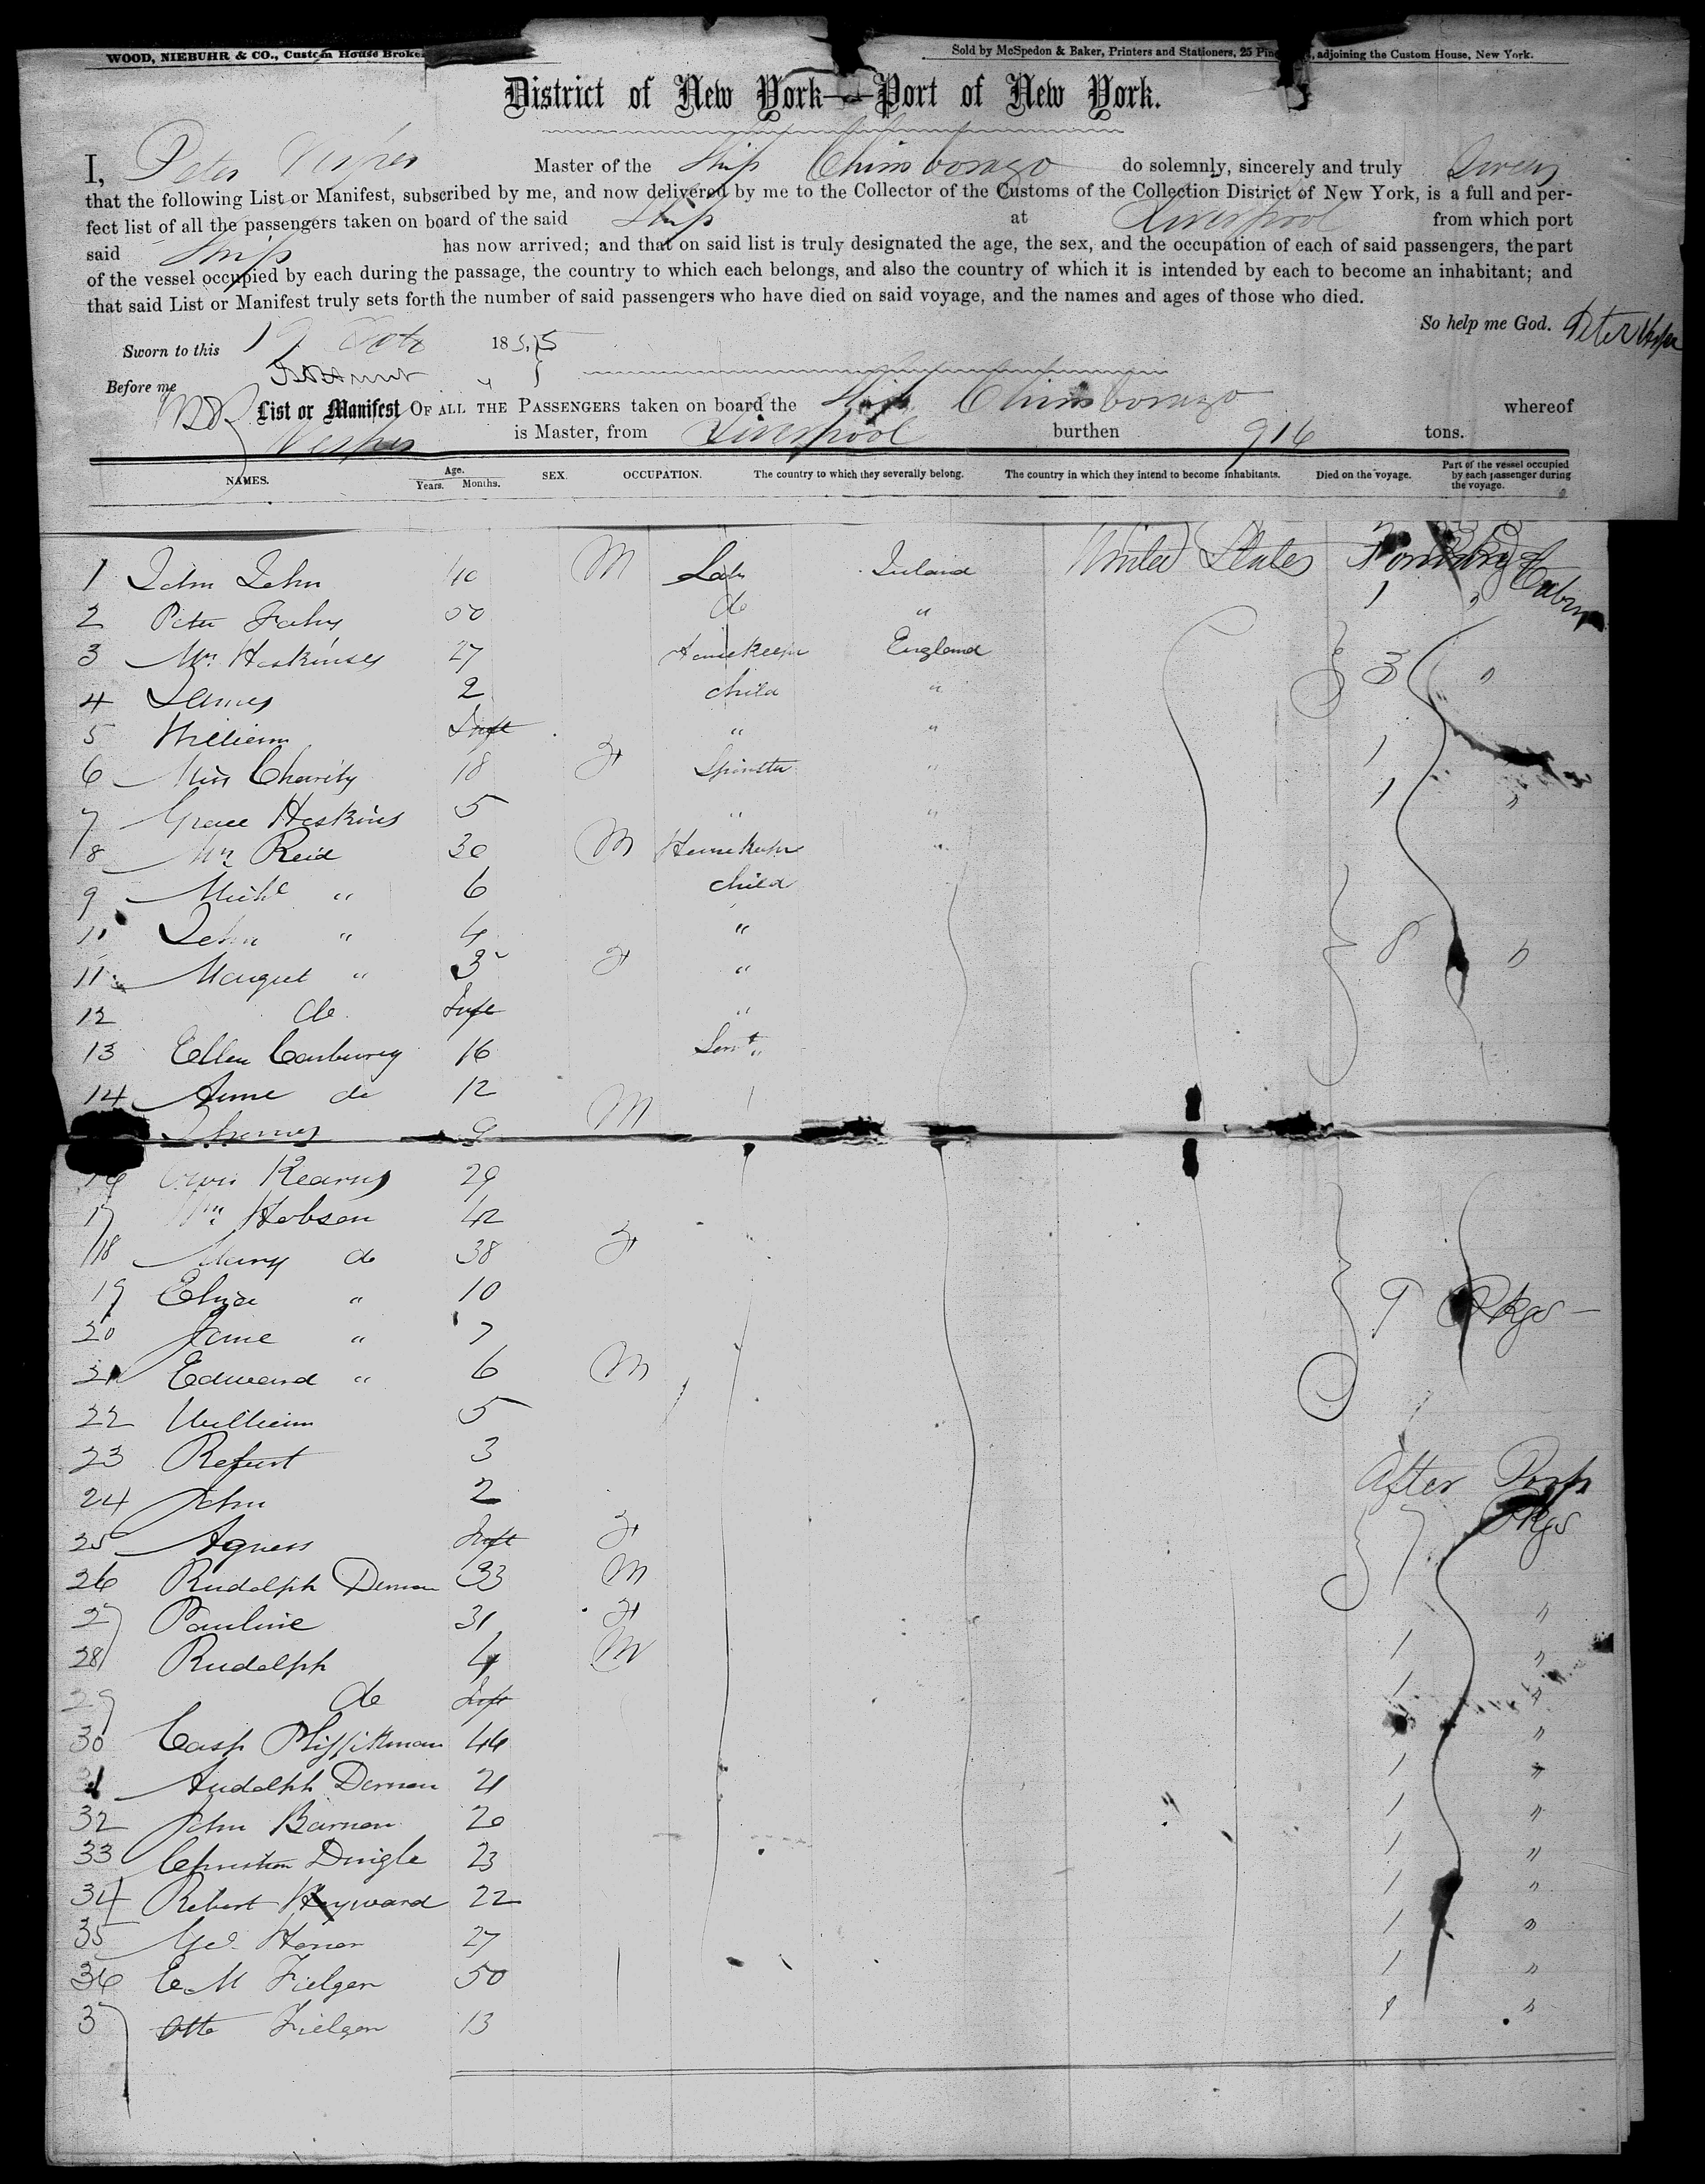 WOOD, NIEBUHR & CO., Custom House Broke
Sold by McSpedon & Baker, Printers and Stationers, 25 Pine adjoining the Custom House, New York.
District of New York—Port of New York.
I, Peter Vesper Master of the Ship Chimborazo do solemnly, sincerely and truly Swear
that the following List or Manifest, subscribed by me, and now delivered by me to the Collector of the Customs of the Collection District of New York, is a full and per-
fect list of all the passengers taken on board of the said Ship at Liverpool from which port
said Ship has now arrived; and that on said list is truly designated the age, the sex, and the occupation of each of said passengers, the part
of the vessel occupied by each during the passage, the country to which each belongs, and also the country of which it is intended by each to become an inhabitant; and
that said List or Manifest truly sets forth the number of said passengers who have died on said voyage, and the names and ages of those who died.
So help me God. Peter Vesper
Sworn to this 19 Octo 1855
Before me
List or Manifest OF ALL THE PASSENGERS taken on board the Ship Chimborazo whereof
Vesper is Master, from Liverpool burthen 916 tons.
NAMES. Age. Years. Months. SEX. OCCUPATION. The country to which they severally belong. The country in which they intend to become inhabitants. Died on the voyage. Part of the vessel occupied by each passenger during the voyage.
1 John John 40 M Lab Ireland United States Cabin
2 Peter Fahy 50 do " 1 "
3 Mrs Hoskinses 27 Housekeeper England 3 "
4 James 2 child "
5 William Inft " "
6 Miss Charity 18 F Spinster " 1
7 Grace Hoskins 5 " " 1 "
8 Mrs Reid 30 M Housekeeper "
9 Michl " 6 child
10 John " 4 " 8 "
11 Margret " 3 F "
12 do Inft "
13 Ellen Carburey 16 Servt "
14 Anne do 12
Thomas 9 M
16 Owen Kearns 29
17 Wm Hobson 42
18 Mary do 38 F
19 Eliza " 10 9 Pkgs
20 Jane " 7
21 Edward " 6 M
22 William 5
23 Robert 3
24 John 2 After
25 Agness Inft F 7 Pkgs
26 Rudolph Deman 33 M
27 Pauline 31 F "
28 Rudolph 4 M 1 "
29 do Inft 1 "
30 Casp 44 "
31 Rudolph Deman 21 1 "
32 John Barnon 20 1 "
33 Christian Dingle 23 1 "
34 Robert Hayward 22 1 "
35 Geo. Honor 27 1 "
36 E M Fielgen 50 1 "
37 Otto Fielgen 13 1 "